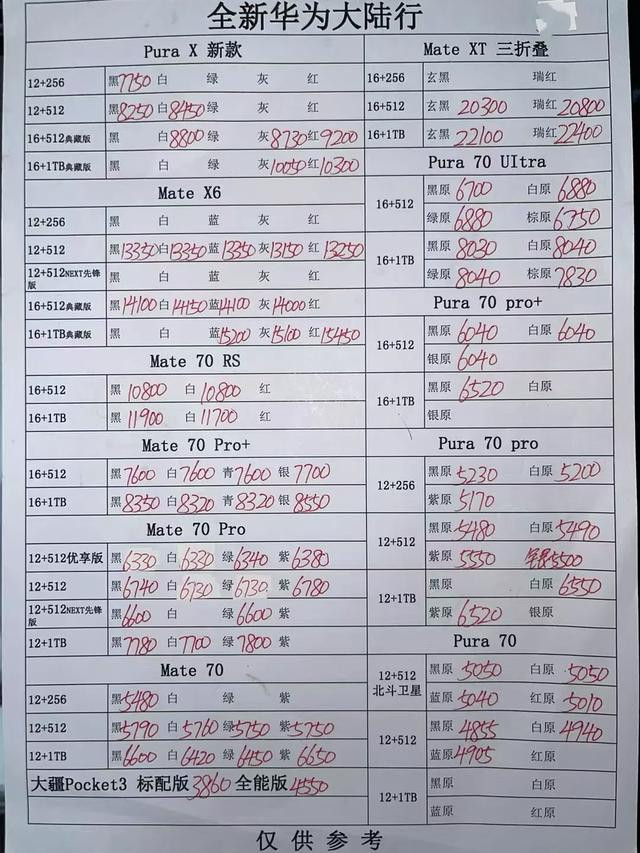 全新华为大陆行
Pura X 新款
12+256 黑7750 白 绿 灰 红
12+512 黑8250 白8450 绿 灰 红
16+512典藏版 黑 白8800 绿 灰8730 红9200
16+1TB典藏版 黑 白 绿 灰10050 红10300
Mate X6
12+256 黑 白 蓝 灰 红
12+512 黑13350 白13350 蓝13350 灰13150 红13250
12+512NEXT先锋版 黑 白 蓝 灰 红
16+512典藏版 黑14100 白14150 蓝14100 灰14000 红
16+1TB典藏版 黑 白 蓝15200 灰15100 红15450
Mate 70 RS
16+512 黑10800 白10800 红
16+1TB 黑11900 白11700 红
Mate 70 Pro+
16+512 黑7600 白7600 青7600 银7700
16+1TB 黑8350 白8320 青8320 银8550
Mate 70 Pro
12+512优享版 黑6330 白6330 绿6340 紫6380
12+512 黑6740 白6730 绿6730 紫6780
12+512NEXT先锋版 黑6600 白 绿6600 紫
12+1TB 黑7780 白7700 绿7800 紫
Mate 70
12+256 黑5480 白 绿 紫
12+512 黑5790 白5760 绿5750 紫5750
12+1TB 黑6600 白6420 绿6450 紫6650
大疆Pocket3 标配版3860 全能版4550
Mate XT 三折叠
16+256 玄黑 瑞红
16+512 玄黑 20300 瑞红 20800
16+1TB 玄黑 22100 瑞红 22400
Pura 70 UItra
16+512 黑原6700 白原6880
绿原6880 棕原6750
16+1TB 黑原8030 白原8040
绿原8040 棕原7830
Pura 70 pro+
16+512 黑原6040 白原6040
银原6040
16+1TB 黑原6520 白原
银原
Pura 70 pro
12+256 黑原5230 白原5200
紫原5170
12+512 黑原5480 白原5490
紫原5550 5500
12+1TB 黑原 白原6550
紫原6520 银原
Pura 70
12+512北斗卫星 黑原5050 白原5050
蓝原5040 红原5010
12+512 黑原4855 白原4940
蓝原4905 红原
12+1TB 黑原 白原
蓝原 红原
仅供参考